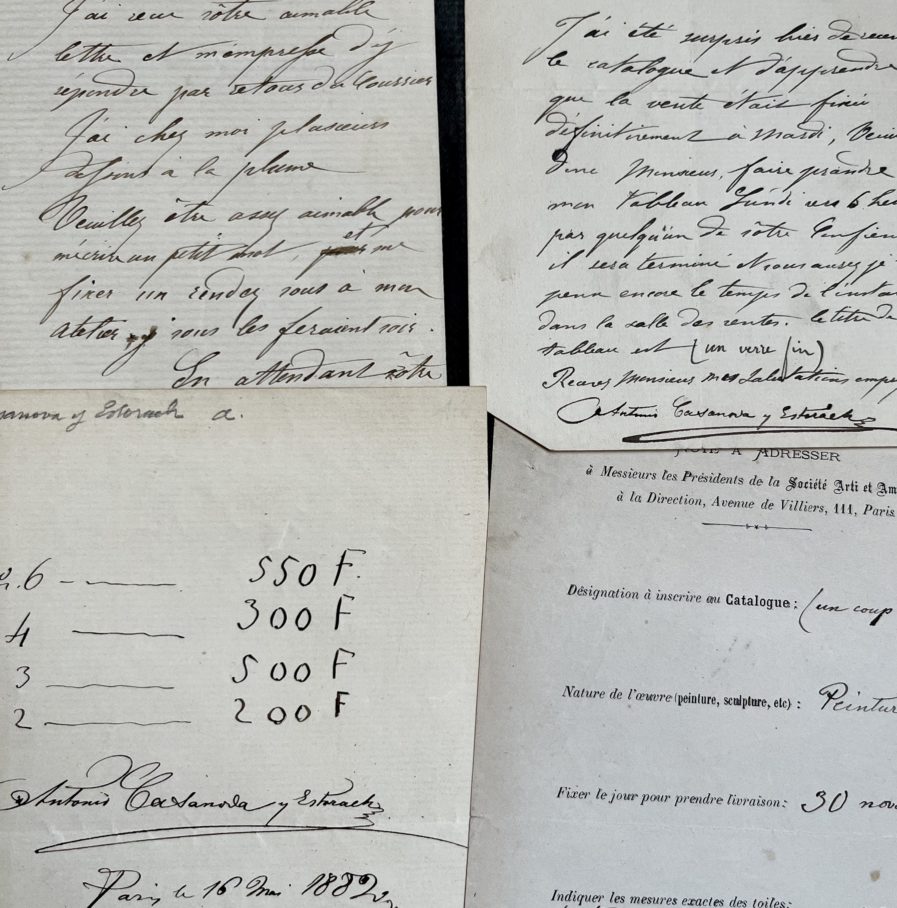 J'ai reçu vôtre aimable
lettre et m'empresse d'y
répondre par retour du Courrier
J'ai chez moi plusieurs
dessins à la plume
Veuillez être assez aimable pour
m'écrire un petit mot, et me
fixer un rendez vous à mon
atelier, je vous les feraient voir.
En attendant vôtre
J'ai été surpris hier de
le catalogue et d'apprendre
que la vente était fixée
définitivement à Mardi,
donc Monsieur, faire prandre
mon tableau Lúndi vers 6
par quelqu'un de vôtre
il sera terminé et
encore le temps de
dans la salle des ventes. le titre
tableau est (un verre fin)
Recevez Monsieur mes Salutations
Antonio Casanova y Estorach
Casanova y Estorach a.
6 — 550 F.
4 — 300 F
3 — 500 F
2 — 200 F
Antonio Casanova y Estorach
Paris le 16 Mai 1882
A ADRESSER
à Messieurs les Présidents de la Société Arti et
à la Direction, Avenue de Villiers, 111, Paris
Désignation à inscrire au Catalogue : (un coup
Nature de l'œuvre (peinture, sculpture, etc) : Peintur
Fixer le jour pour prendre livraison : 30 nov
Indiquer les mesures exactes des toiles :